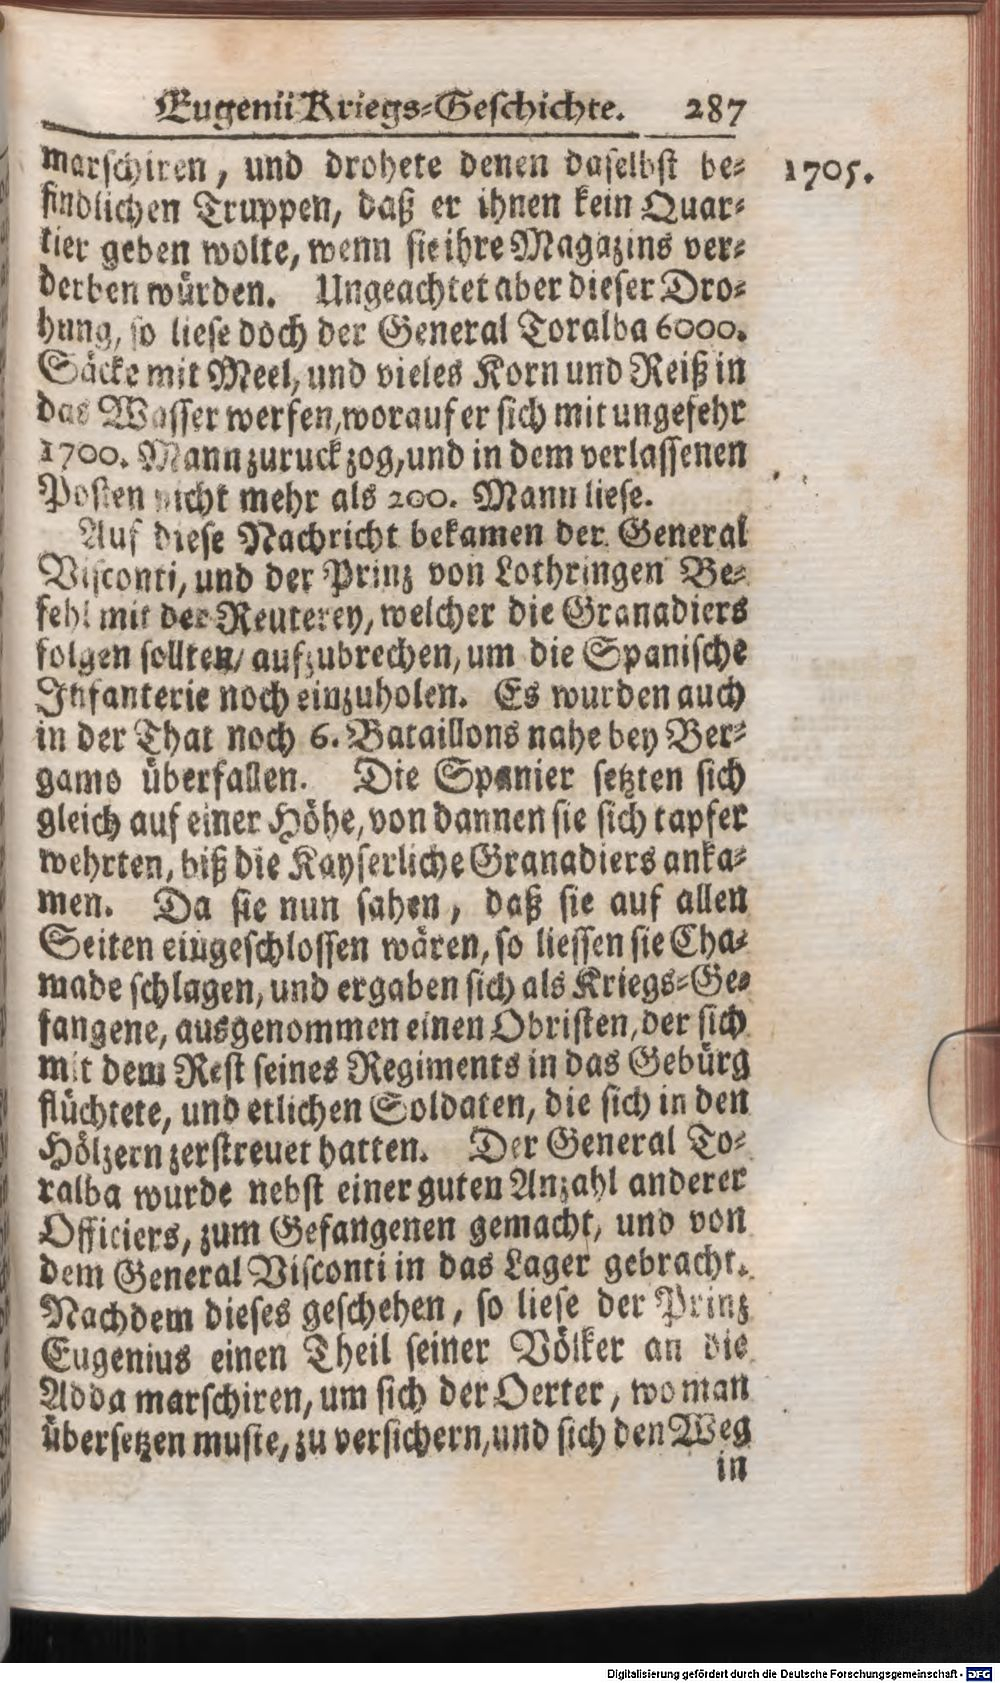 Eugenii Kriegs-Geschichte. 287
1705.
marschiren, und drohete denen daselbst be-
findlichen Truppen, daß er ihnen kein Quar-
tier geben wolte, wenn sie ihre Magazins ver-
derben würden. Ungeachtet aber dieser Dro-
hung, so liese doch der General Toralba 6000.
Säcke mit Meel, und vieles Korn und Reiß in
das Wasser werfen, worauf er sich mit ungefehr
1700. Mann zuruck zog, und in dem verlassenen
Posten nicht mehr als 200. Mann liese.
Auf diese Nachricht bekamen der General
Visconti, und der Prinz von Lothringen Be-
fehl mit der Reuterey, welcher die Granadiers
folgen sollten, aufzubrechen, um die Spanische
Infanterie noch einzuholen. Es wurden auch
in der That noch 6. Bataillons nahe bey Ber-
gamo überfallen. Die Spanier setzten sich
gleich auf einer Höhe, von dannen sie sich tapfer
wehrten, biß die Kayserliche Granadiers anka-
men. Da sie nun sahen, daß sie auf allen
Seiten eingeschlossen wären, so liessen sie Cha-
made schlagen, und ergaben sich als Kriegs-Ge-
fangene, ausgenommen einen Obristen, der sich
mit dem Rest seines Regiments in das Gebürg
flüchtete, und etlichen Soldaten, die sich in den
Hölzern zerstreuet hatten. Der General To-
ralba wurde nebst einer guten Anzahl anderer
Officiers, zum Gefangenen gemacht, und von
dem General Visconti in das Lager gebracht.
Nachdem dieses geschehen, so liese der Prinz
Eugenius einen Theil seiner Völker an die
Adda marschiren, um sich der Oerter, wo man
übersetzen muste, zu versichern, und sich den Weg
in
Digitalisierung gefördert durch die Deutsche Forschungsgemeinschaft - DFG